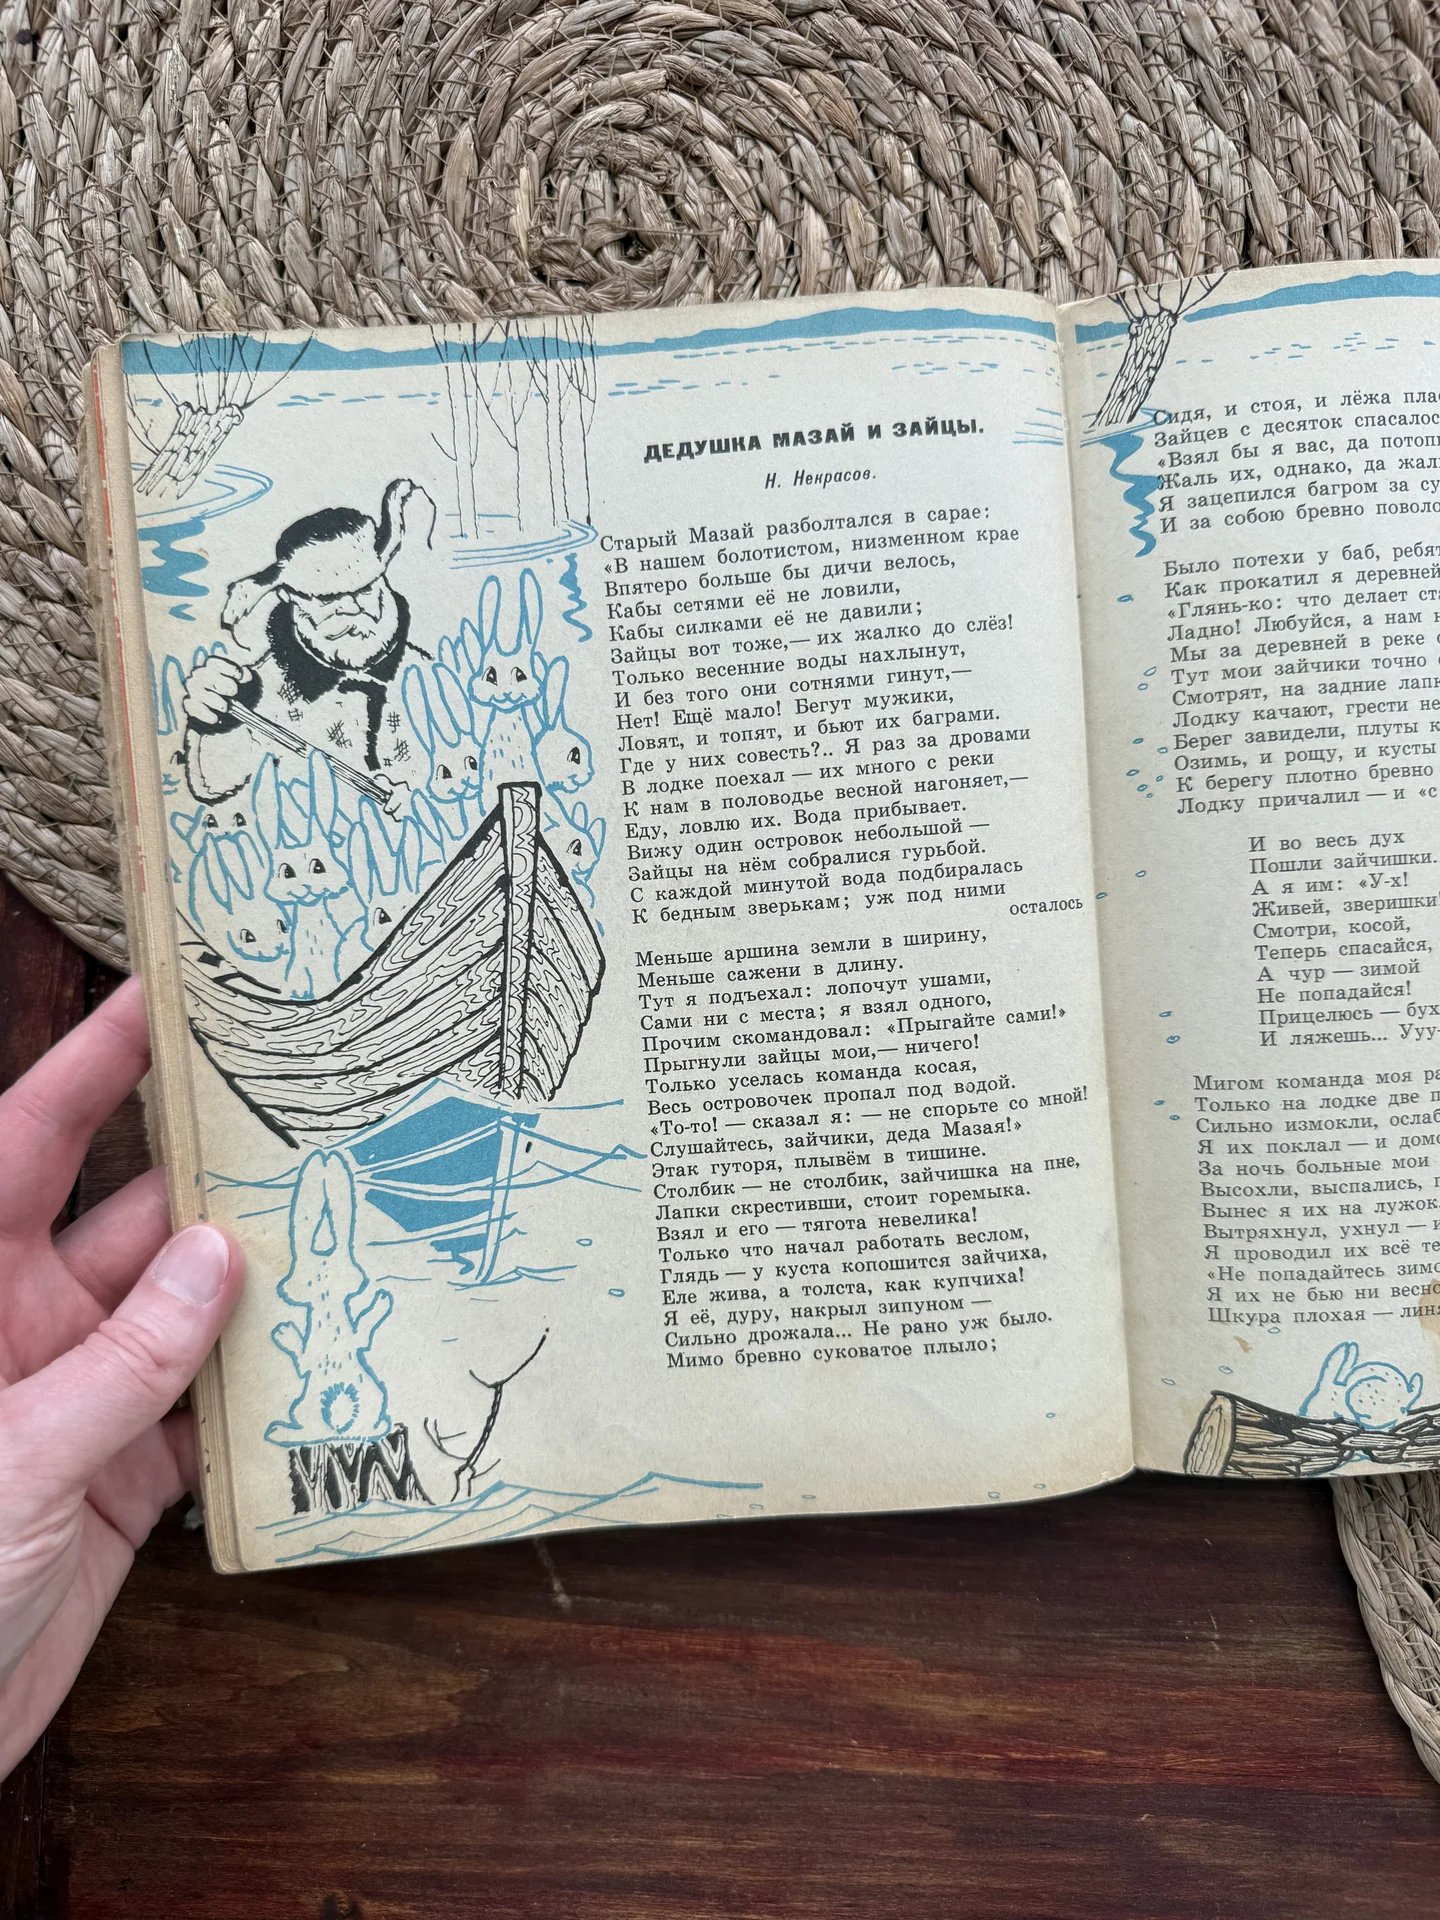 ДЕДУШКА МАЗАЙ И ЗАЙЦЫ.
Н. Некрасов.
Старый Мазай разболтался в сарае:
«В нашем болотистом, низменном крае
Впятеро больше бы дичи велось,
Кабы сетями её не ловили,
Кабы силками её не давили;
Зайцы вот тоже,— их жалко до слёз!
Только весенние воды нахлынут,
И без того они сотнями гинут,—
Нет! Ещё мало! Бегут мужики,
Ловят, и топят, и бьют их баграми.
Где у них совесть?.. Я раз за дровами
В лодке поехал — их много с реки
К нам в половодье весной нагоняет,—
Еду, ловлю их. Вода прибывает.
Вижу один островок небольшой —
Зайцы на нём собралися гурьбой.
С каждой минутой вода подбиралась
К бедным зверькам; уж под ними
осталось
Меньше аршина земли в ширину,
Меньше сажени в длину.
Тут я подъехал: лопочут ушами,
Сами ни с места; я взял одного,
Прочим скомандовал: «Прыгайте сами!»
Прыгнули зайцы мои,— ничего!
Только уселась команда косая,
Весь островочек пропал под водой.
«То-то! — сказал я: — не спорьте со мной!
Слушайтесь, зайчики, деда Мазая!»
Этак гуторя, плывём в тишине.
Столбик — не столбик, зайчишка на пне,
Лапки скрестивши, стоит горемыка.
Взял и его — тягота невелика!
Только что начал работать веслом,
Глядь — у куста копошится зайчиха,
Еле жива, а толста, как купчиха!
Я её, дуру, накрыл зипуном —
Сильно дрожала... Не рано уж было.
Мимо бревно суковатое плыло;
Сидя, и стоя, и лёжа
Зайцев с десяток
«Взял бы я вас, да
Жаль их, однако, да
Я зацепился багром за
И за собою бревно
Было потехи у баб,
Как прокатил я
«Глянь-ко: что делает
Ладно! Любуйся, а нам
Мы за деревней в реке
Тут мои зайчики точно
Смотрят, на задние
Лодку качают, грести
Берег завидели, плуты
Озимь, и рощу, и кусты
К берегу плотно бревно
Лодку причалил — и «с
И во весь дух
Пошли зайчишки.
А я им: «У-х!
Живей, зверишки!
Смотри, косой,
Теперь спасайся,
А чур — зимой
Не попадайся!
Прицелюсь — бух
И ляжешь...
Мигом команда моя
Только на лодке две
Сильно измокли,
Я их поклал — и
За ночь больные мои
Высохли, выспались,
Вынес я их на лужок,
Вытряхнул, ухнул —
Я проводил их всё
«Не попадайтесь
Я их не бью ни
Шкура плохая —